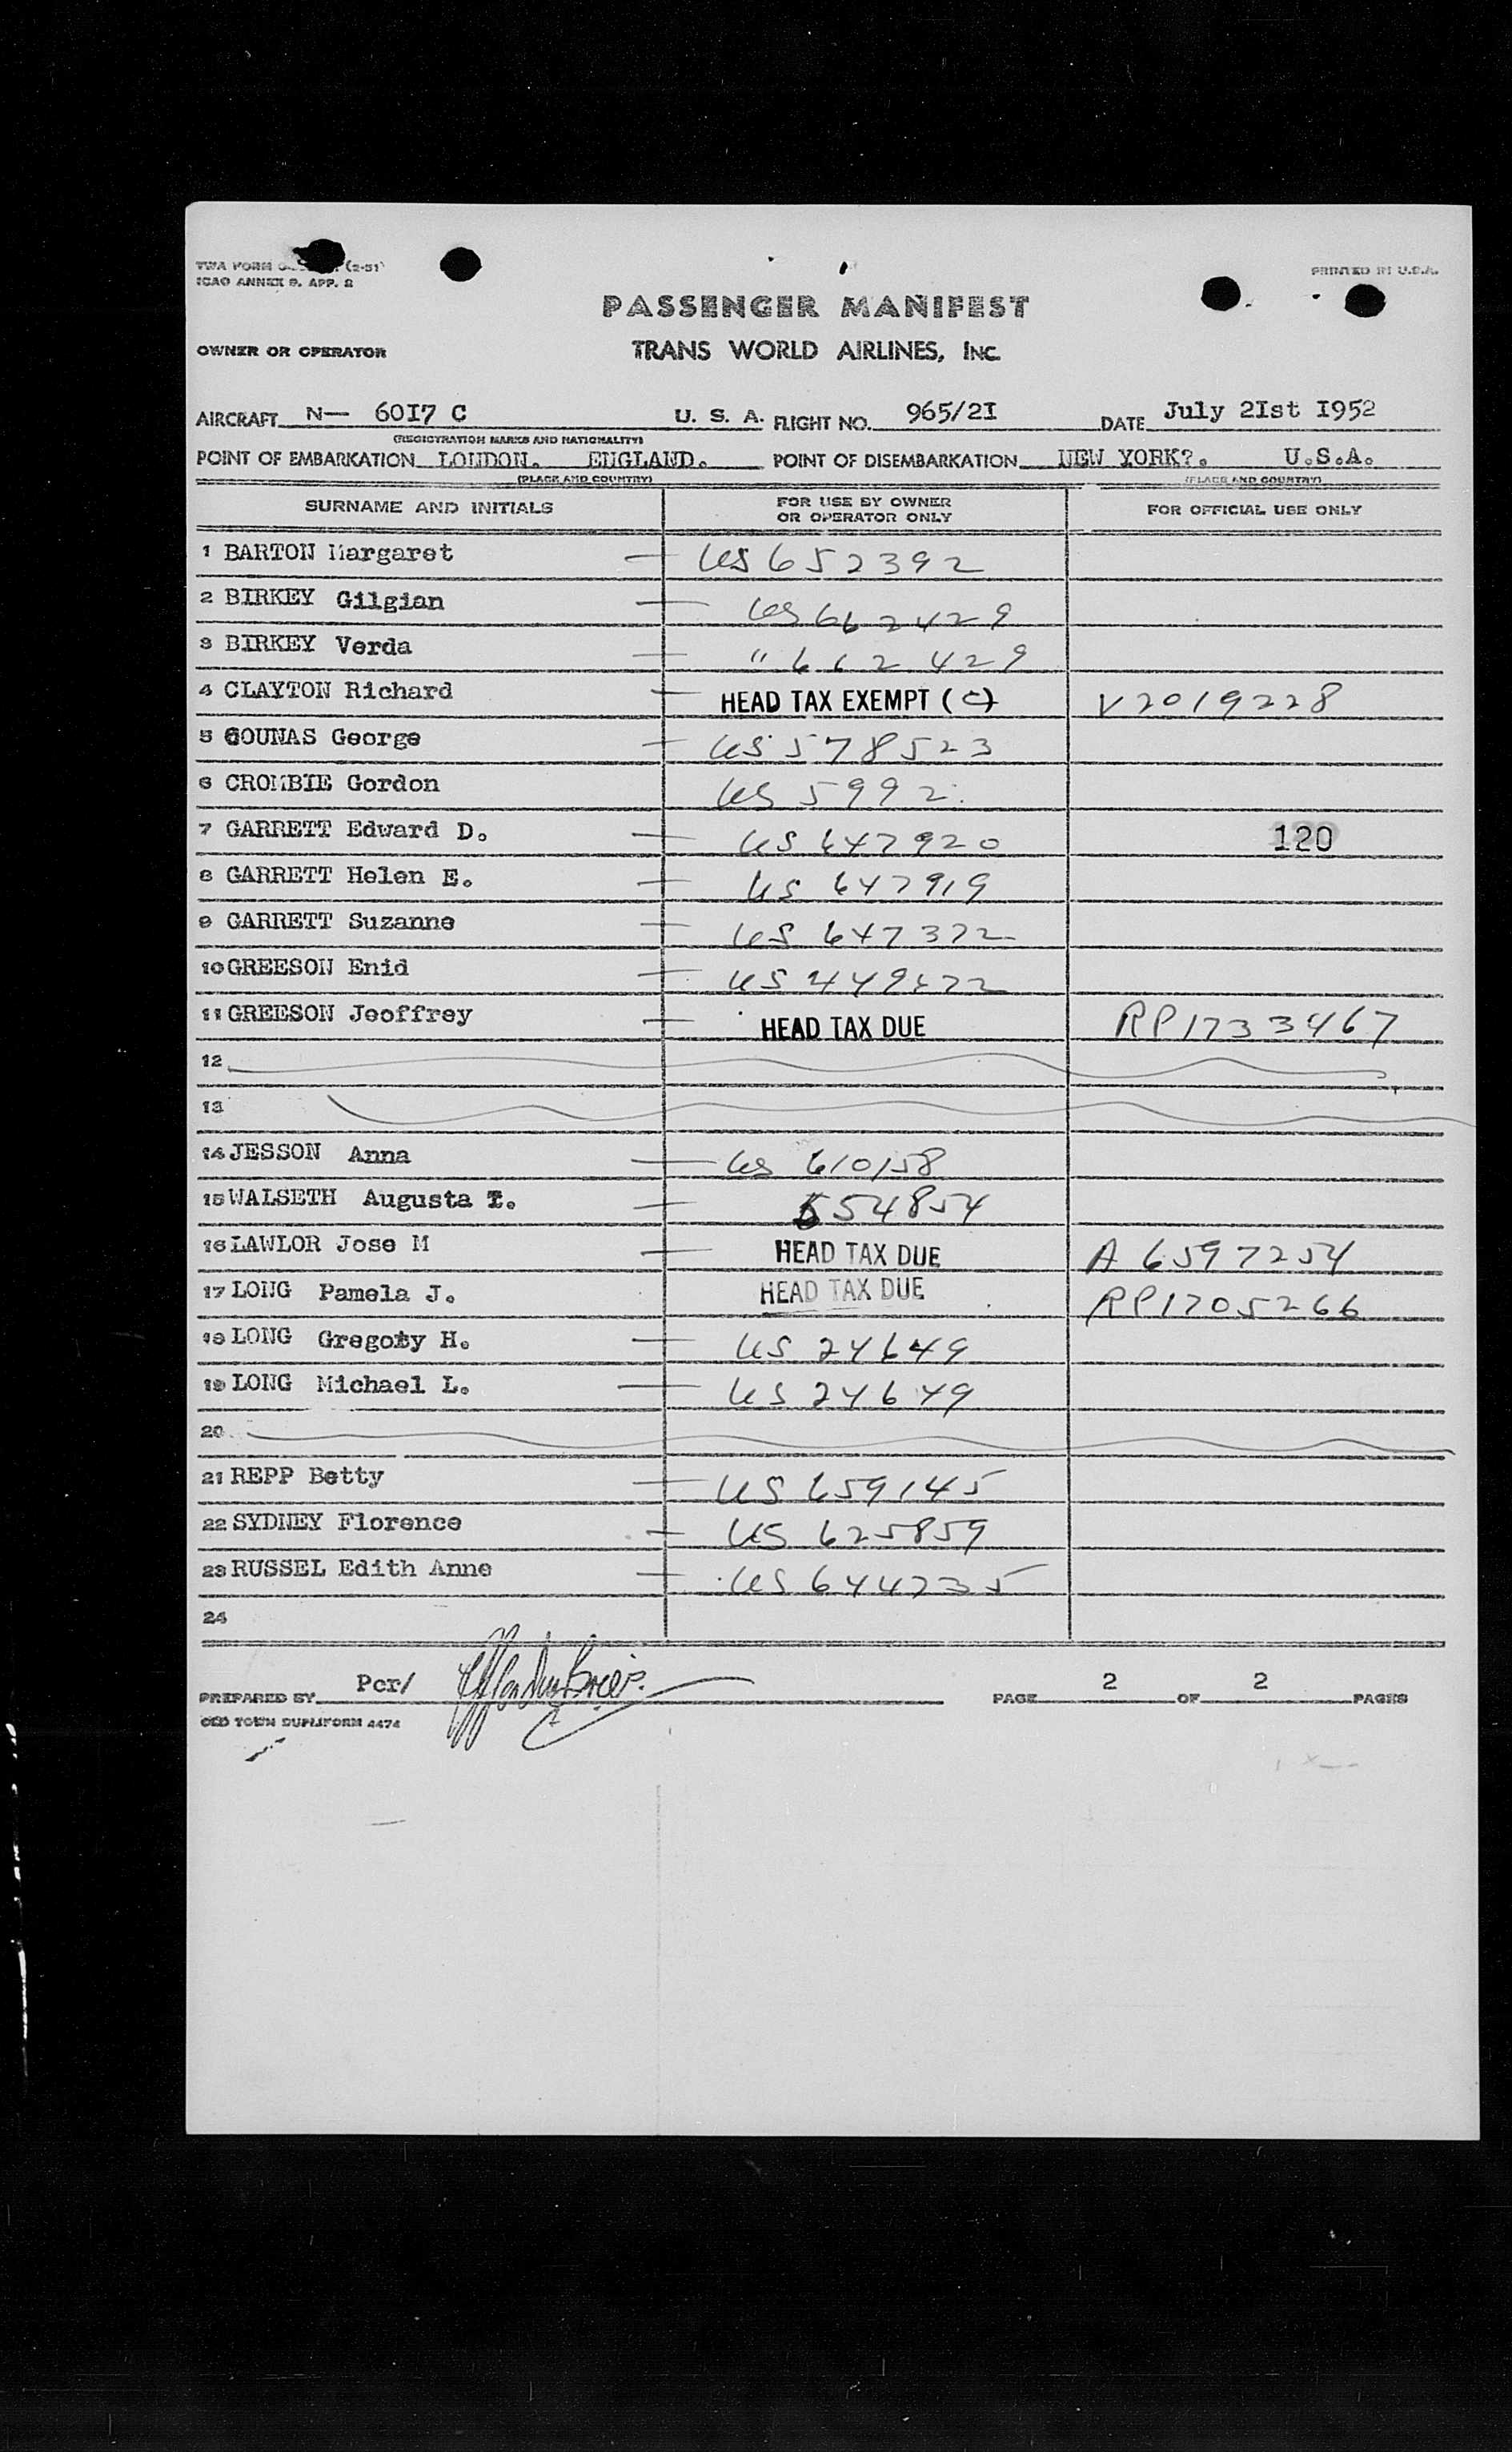 TWA FORM (2-51)
ICAO ANNEX 9. APP. 2
PRINTED IN U.S.A.
PASSENGER MANIFEST
OWNER OR OPERATOR TRANS WORLD AIRLINES, INC.
AIRCRAFT N— 60I7 C U. S. A. FLIGHT NO. 965/2I DATE July 2Ist I952
(REGISTRATION MARKS AND NATIONALITY)
POINT OF EMBARKATION LONDON. ENGLAND. POINT OF DISEMBARKATION NEW YORK?. U.S.A.
(PLACE AND COUNTRY) (PLACE AND COUNTRY)
SURNAME AND INITIALS FOR USE BY OWNER OR OPERATOR ONLY FOR OFFICIAL USE ONLY
1 BARTON Margaret — US 652392
2 BIRKEY Gilgian — US 662429
3 BIRKEY Verda — " 662429
4 CLAYTON Richard — HEAD TAX EXEMPT (C) V2019228
5 GOUNAS George — US 578523
6 CROMBIE Gordon US 5992.
7 GARRETT Edward D. — US 647920 120
8 GARRETT Helen E. — US 647919
9 GARRETT Suzanne — US 647372
10 GREESON Enid — US
11 GREESON Jeoffrey — HEAD TAX DUE RP1733467
12
13
14 JESSON Anna — US 610158
15 WALSETH Augusta I. — 654854
16 LAWLOR Jose M — HEAD TAX DUE A 6597254
17 LONG Pamela J. HEAD TAX DUE RP1705266
18 LONG Gregory H. — US 24649
19 LONG Michael L. — US 24649
20
21 REPP Betty — US 659145
22 SYDNEY Florence — US 625859
23 RUSSEL Edith Anne — US 644735
24
PREPARED BY Per/ PAGE 2 OF 2 PAGES
OLD TOWN DUPLIFORM 4474